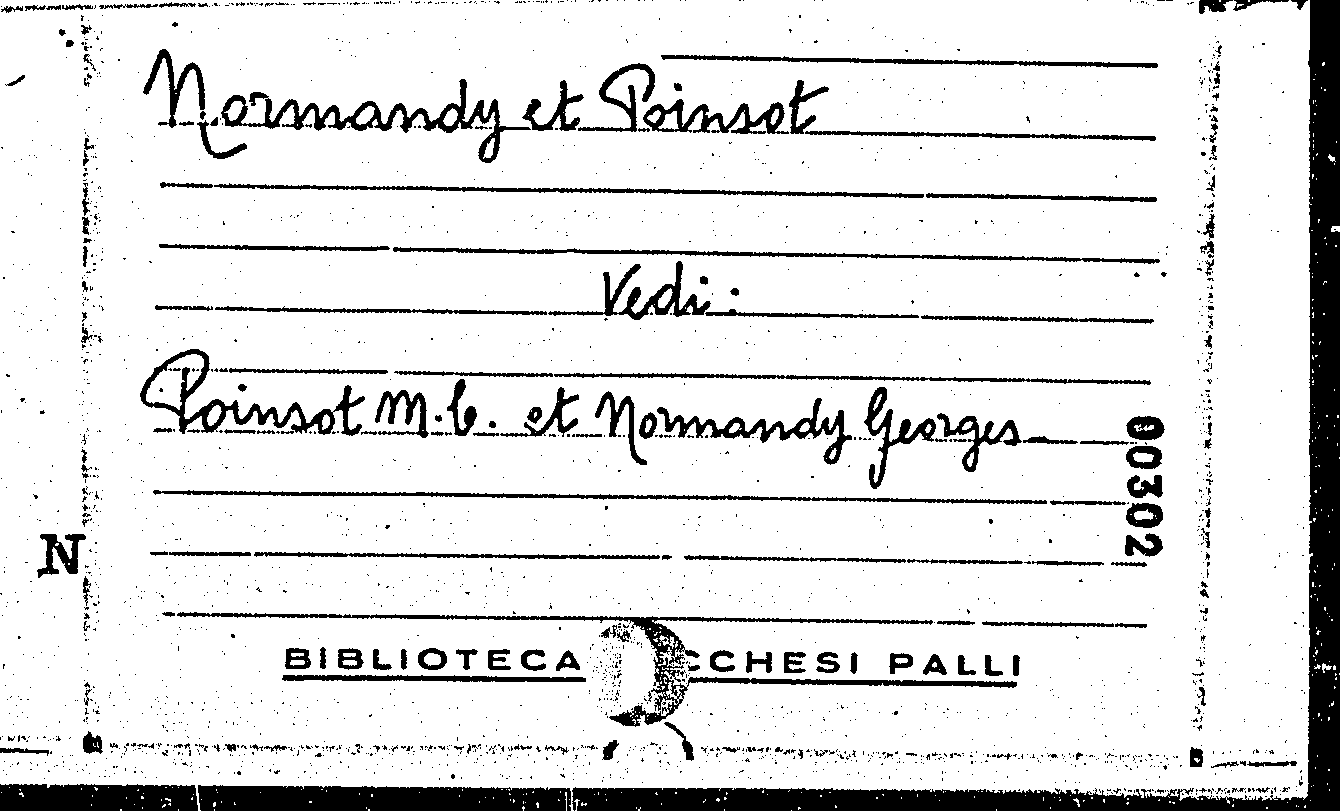 Normandy et Poinsot
Vedi:
Poinsot M.C. et Normandy Georges
00302
N
BIBLIOTECA CCHESI PALLI